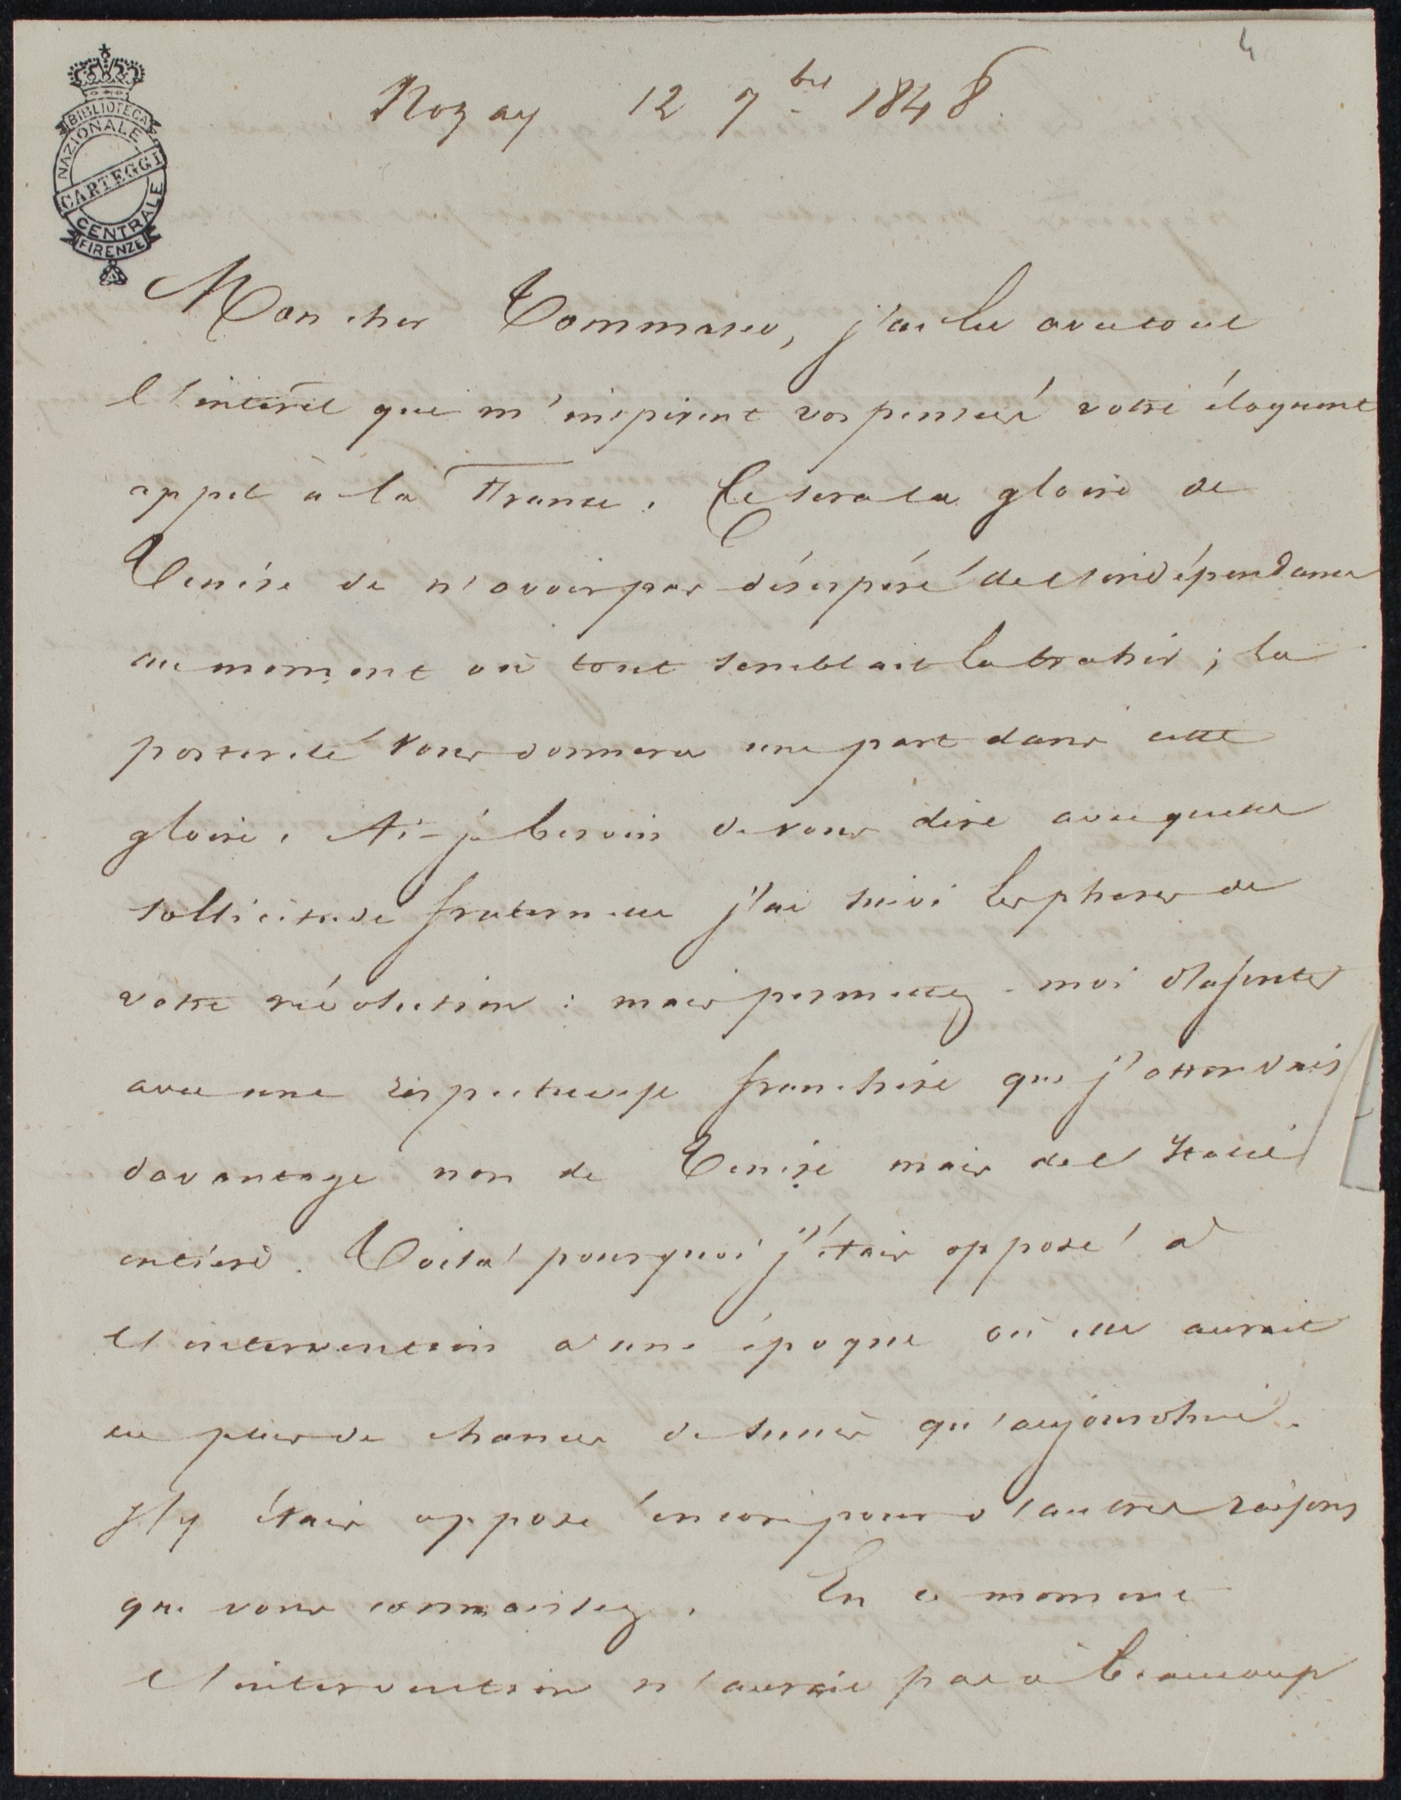 4
BIBLIOTECA
NAZIONALE
CARTEGGI
CENTRALE
FIRENZE
Nozay 12 7bre 1848
Mon cher Tommaseo, j'ai lu avec tout
l'intérêt que m'inspirent vos pensées votre éloquent
appel à la France. Ce sera la gloire de
Venise de n'avoir pas désespéré de l'indépendance
au moment où tout semblait la trahir ; la
postérité vous donnera une part dans cette
gloire. Ai-je besoin de vous dire avec quelle
sollicitude fraternelle j'ai suivi les phases de
votre révolution : mais permettez-moi d'ajouter
avec une respectueuse franchise que j'attendais
davantage non de Venise mais de l'Italie
entière. Voilà pourquoi j'étais opposé à
l'intervention à une époque où elle aurait
eu plus de chances de succès qu'aujourd'hui.
J'y étais opposé encore pour d'autres raisons
que vous connaissez. En ce moment
l'intervention n'aurait pas à beaucoup